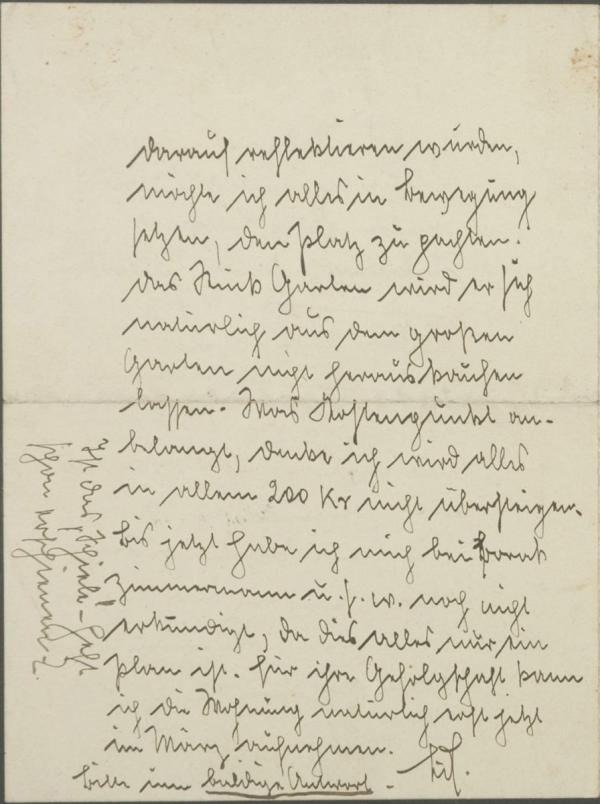 darauf reflektieren würden,
möchte ich alles in Bewegung
setzen, den Platz zu pachten.
Das Stück Garten wird er sich
natürlich aus dem großen
Garten nicht herauskaufen
lassen. Was Kostenpunkt an-
belangt, denke ich wird alles
in allem 200 Kr nicht übersteigen.
Bis jetzt habe ich mich bei
Zimmermann u. s. w. noch nicht
erkundigt, da dies alles nur ein
Plan ist. Für ihre Gefolgschaft kann
ich die Wohnung natürlich erst jetzt
im März aufnehmen.
Bitte um baldige Antwort.
Ist das "Schiele"-Heft
schon erschienen?